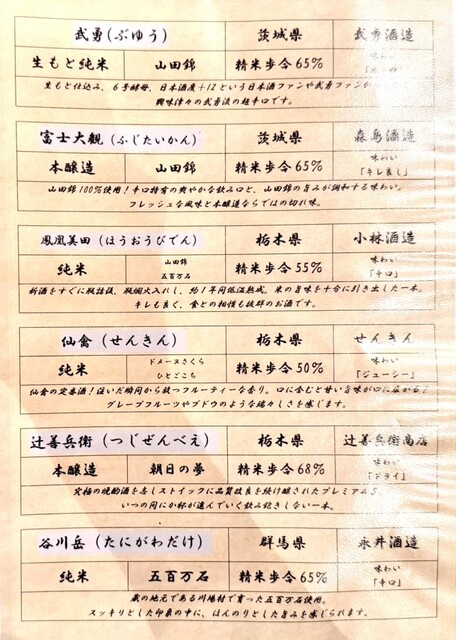 武勇(ぶゆう) 茨城県 武勇酒造
生もと純米 山田錦 精米歩合65% 味わい
生もと仕込み、6号酵母、日本酒度+12という日本酒ファンや武勇ファンが
興味津々の武勇流の超辛口です。
富士大観(ふじたいかん) 茨城県 森島酒造
本醸造 山田錦 精米歩合65% 味わい
「キレ良し」
山田錦100%使用!辛口特有の爽やかな飲み口と、山田錦の旨みが調和する味わい。
フレッシュな風味と本醸造ならではの切れ味。
鳳凰美田(ほうおうびでん) 栃木県 小林酒造
純米 山田錦 五百万石 精米歩合55% 味わい
「辛口」
新酒をすぐに瓶詰後、瓶燗火入れし、約1年間低温熟成。米の旨味を十分に引き出した一本。
キレも良く、食との相性も抜群のお酒です。
仙禽(せんきん) 栃木県 せんきん
純米 ドメーヌさくら ひとごこち 精米歩合50% 味わい
「ジューシー」
仙禽の定番酒!注いだ瞬間から放つフルーティーな香り。口に含むと甘い旨味が口に広がる
グレープフルーツやブドウのような瑞々しさを感じます。
辻善兵衛(つじぜんべえ) 栃木県 辻善兵衛商店
本醸造 朝日の夢 精米歩合68% 味わい
「ドライ」
究極の晩酌酒を志しストイックに品質改良を続け醸されたプレミアム
いつの間にか杯が進んでいく飲み飽きしない一本。
谷川岳(たにがわだけ) 群馬県 永井酒造
純米 五百万石 精米歩合65% 味わい
「辛口」
蔵の地元である川場村で育った五百万石使用。
スッキリとした印象の中に、ほんのりとした旨みを感じられます。